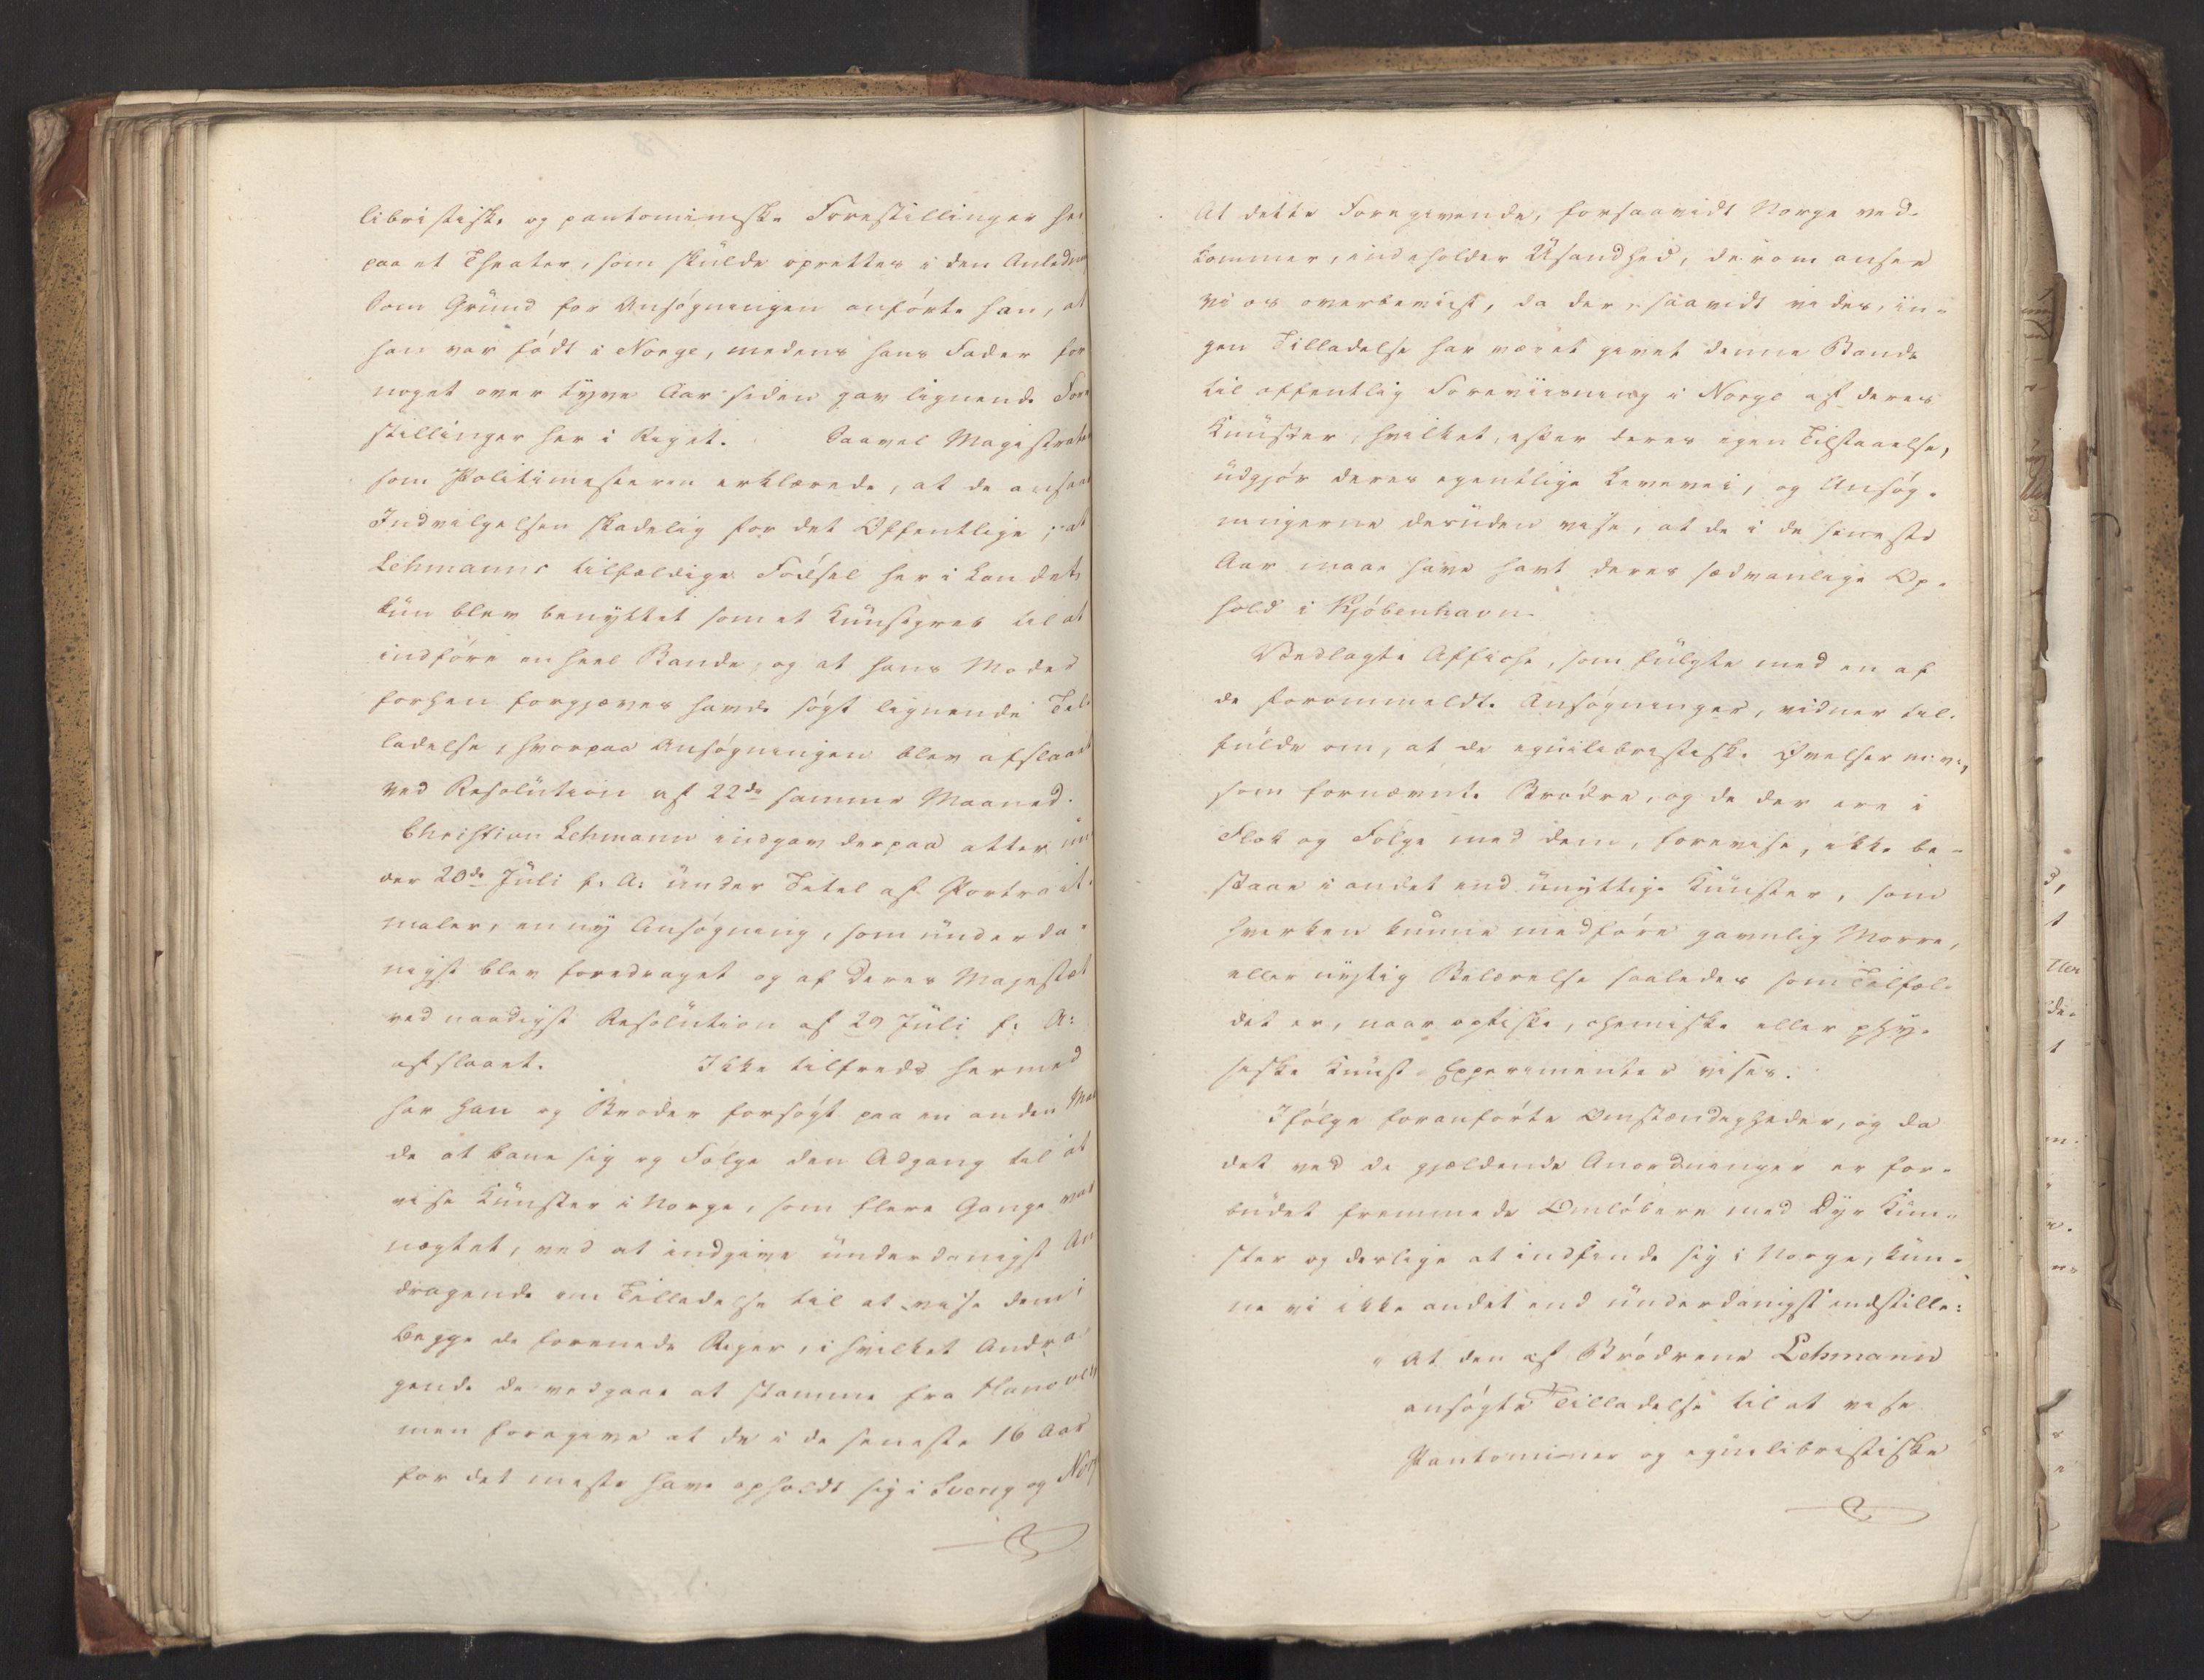 libristiske og pantomimiske Forestillinger her
paa et Theater, som skulde oprettes i den Anledning
Som Grund for Ansøgningen anførte han, at
han var født i Norge, medens hans Fader for
noget over tyve Aar siden gav lignende Fore
stillinger her i Riget. Saavel Magistraten
som Politimesteren erklærede, at de ansaae
Indvilgelsen skadelig for det Offentlige; at
Lehmanns tilfældige Fødsel her i Landet,
kun blev benyttet som et Kunstgreb til at
indføre en heel Bande, og at hans Moder
forhen forgjæves havde søgt lignende Til-
ladelse, hvorpaa Ansøgningen blev afslaaet
ved Resolution af 22de samme Maaned.
Christian Lehmann indgav derpaa atter un
der 20de Juli f. A: under Titel af Portrait-
maler, en ny Ansøgning, som underda-
nigst blev foredraget og af Deres Majestæt
ved naadigst Resolution af 29 Juli f: A:
afslaaet. Ikke tilfreds hermed
har han og Broder forsøgt paa en anden Maa
de at bane sig og Følge den Adgang til at
vise Kunster i Norge, som flere Gange var
nægtet, ved at indgive underdanigst An
dragende om Tilladelse til at vise dem i
begge de forenede Riger, i hvilket Andra
gende de vedgaae at stamme fra Hanover,
men foregive at de i de seneste 16 Aar
for det meste have opholdt sig i Sverig og Norg
At dette Foregivende, forsaavidt Norge ved-
kommer, indeholder Usandhed, derom ansee
vi os overbeviist, da der, saavidt vides, in-
gen Tilladelse har været givet denne Bande
til offentlig Foreviisning i Norge af deres
Kunster, hvilket, efter deres egen Tilstaaelse,
udgjør deres egentlige Levevei, og Ansøg-
ningerne desuden vise, at de i de seneste
Aar maae have havt deres sædvanlige Op-
hold i Kjøbenhavn.
Vedlagte Affiche, som fulgte med en af
de forommeldte Ansøgninger, vidner til-
fulde om, at de equilibristiske Øvelser m: v:,
som fornævnte Brødre, og de der ere i
Flok og Følge med dem, forevise, ikke be-
staae i andet end unyttige Kunster, som
hverken kunne medføre gavnlig Morre,
eller nyttig Belærelse saaledes som Tilfæl-
det er, naar optiske, chemiske eller phy-
siske Kunst-Experimenter vises.
Ifølge foranførte Omstændigheder, og da
det ved de gjældende Anordninger er for-
budet fremmede Omløbere med Dyr Kun-
ster og deslige at indfinde sig i Norge, kun-
ne vi ikke andet end underdanigst indstille:
" At den af Brødrene Lehmann
ansøgte Tilladelse til at vise
Pantomimer og equilibristiske